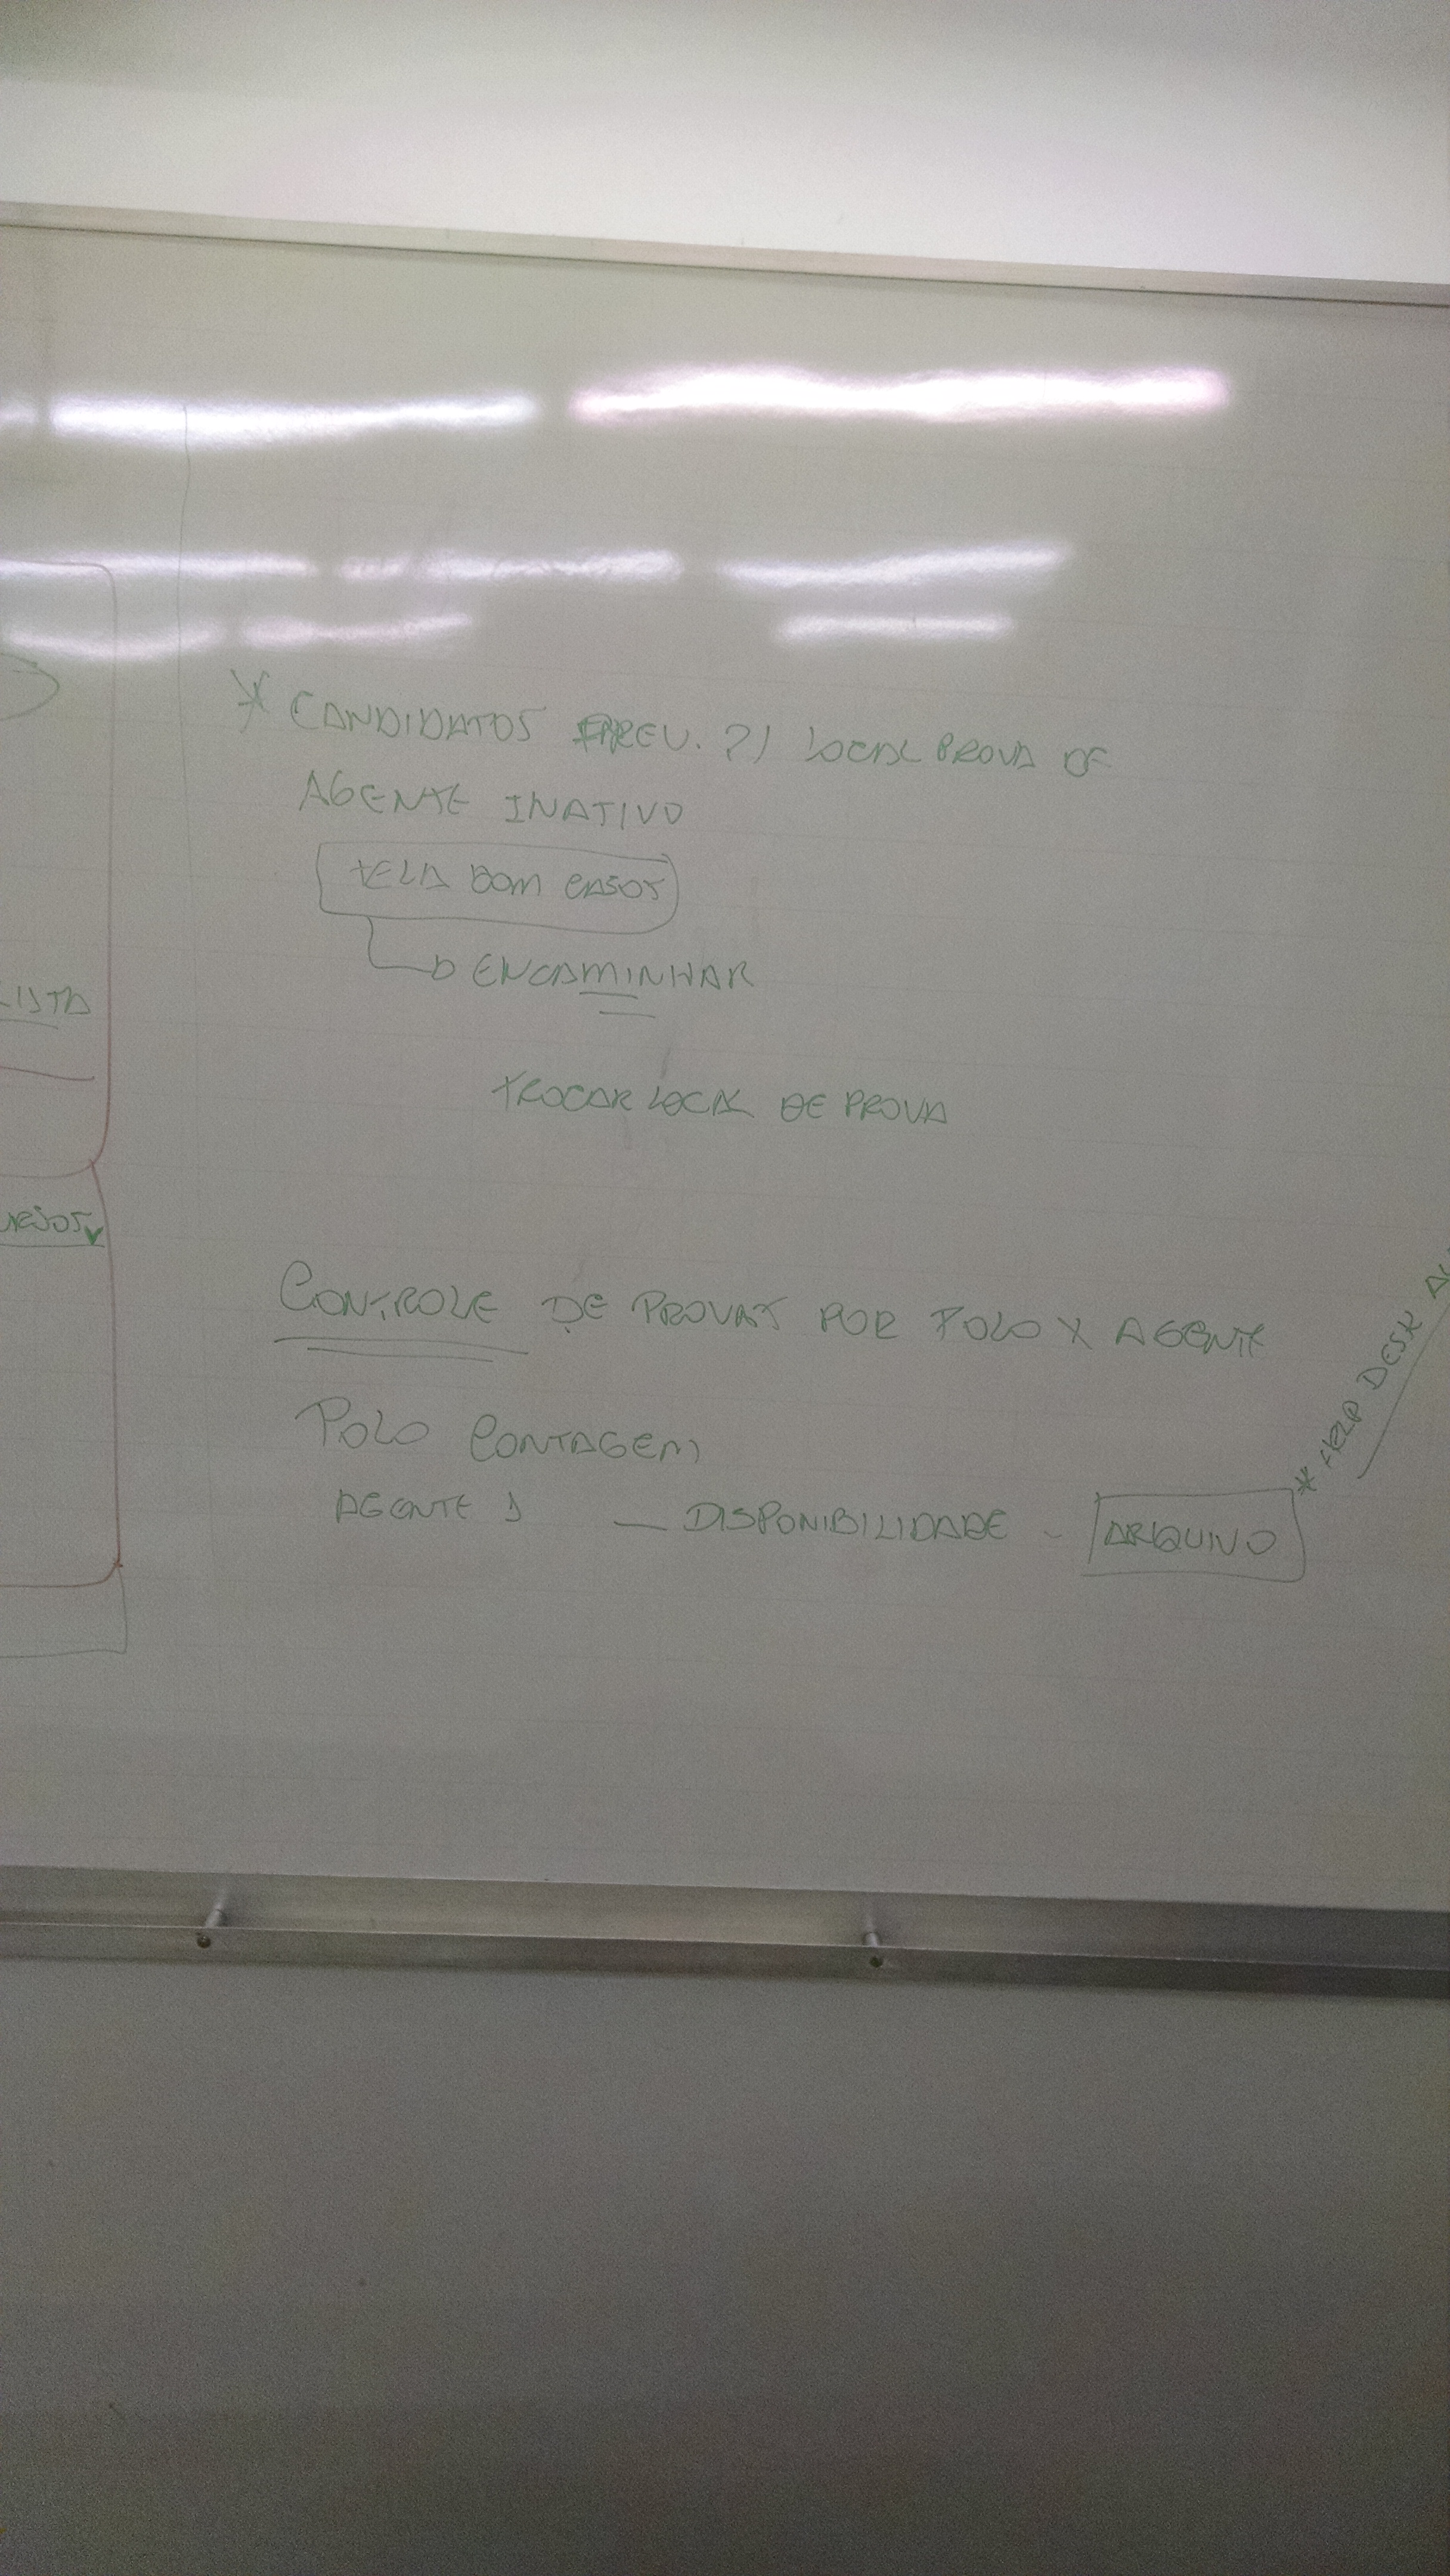 * CANDIDATOS LOCAL PROVA DE
AGENTE INATIVO
TELA COM CASOS
ENCAMINHAR
TROCAR LOCAL DE PROVA
LISTA
CONTROLE DE PROVAS POR POLO X AGENTE
POLO CONTAGEM
AGENTE 1 — DISPONIBILIDADE - ARQUIVO
* HELP DESK